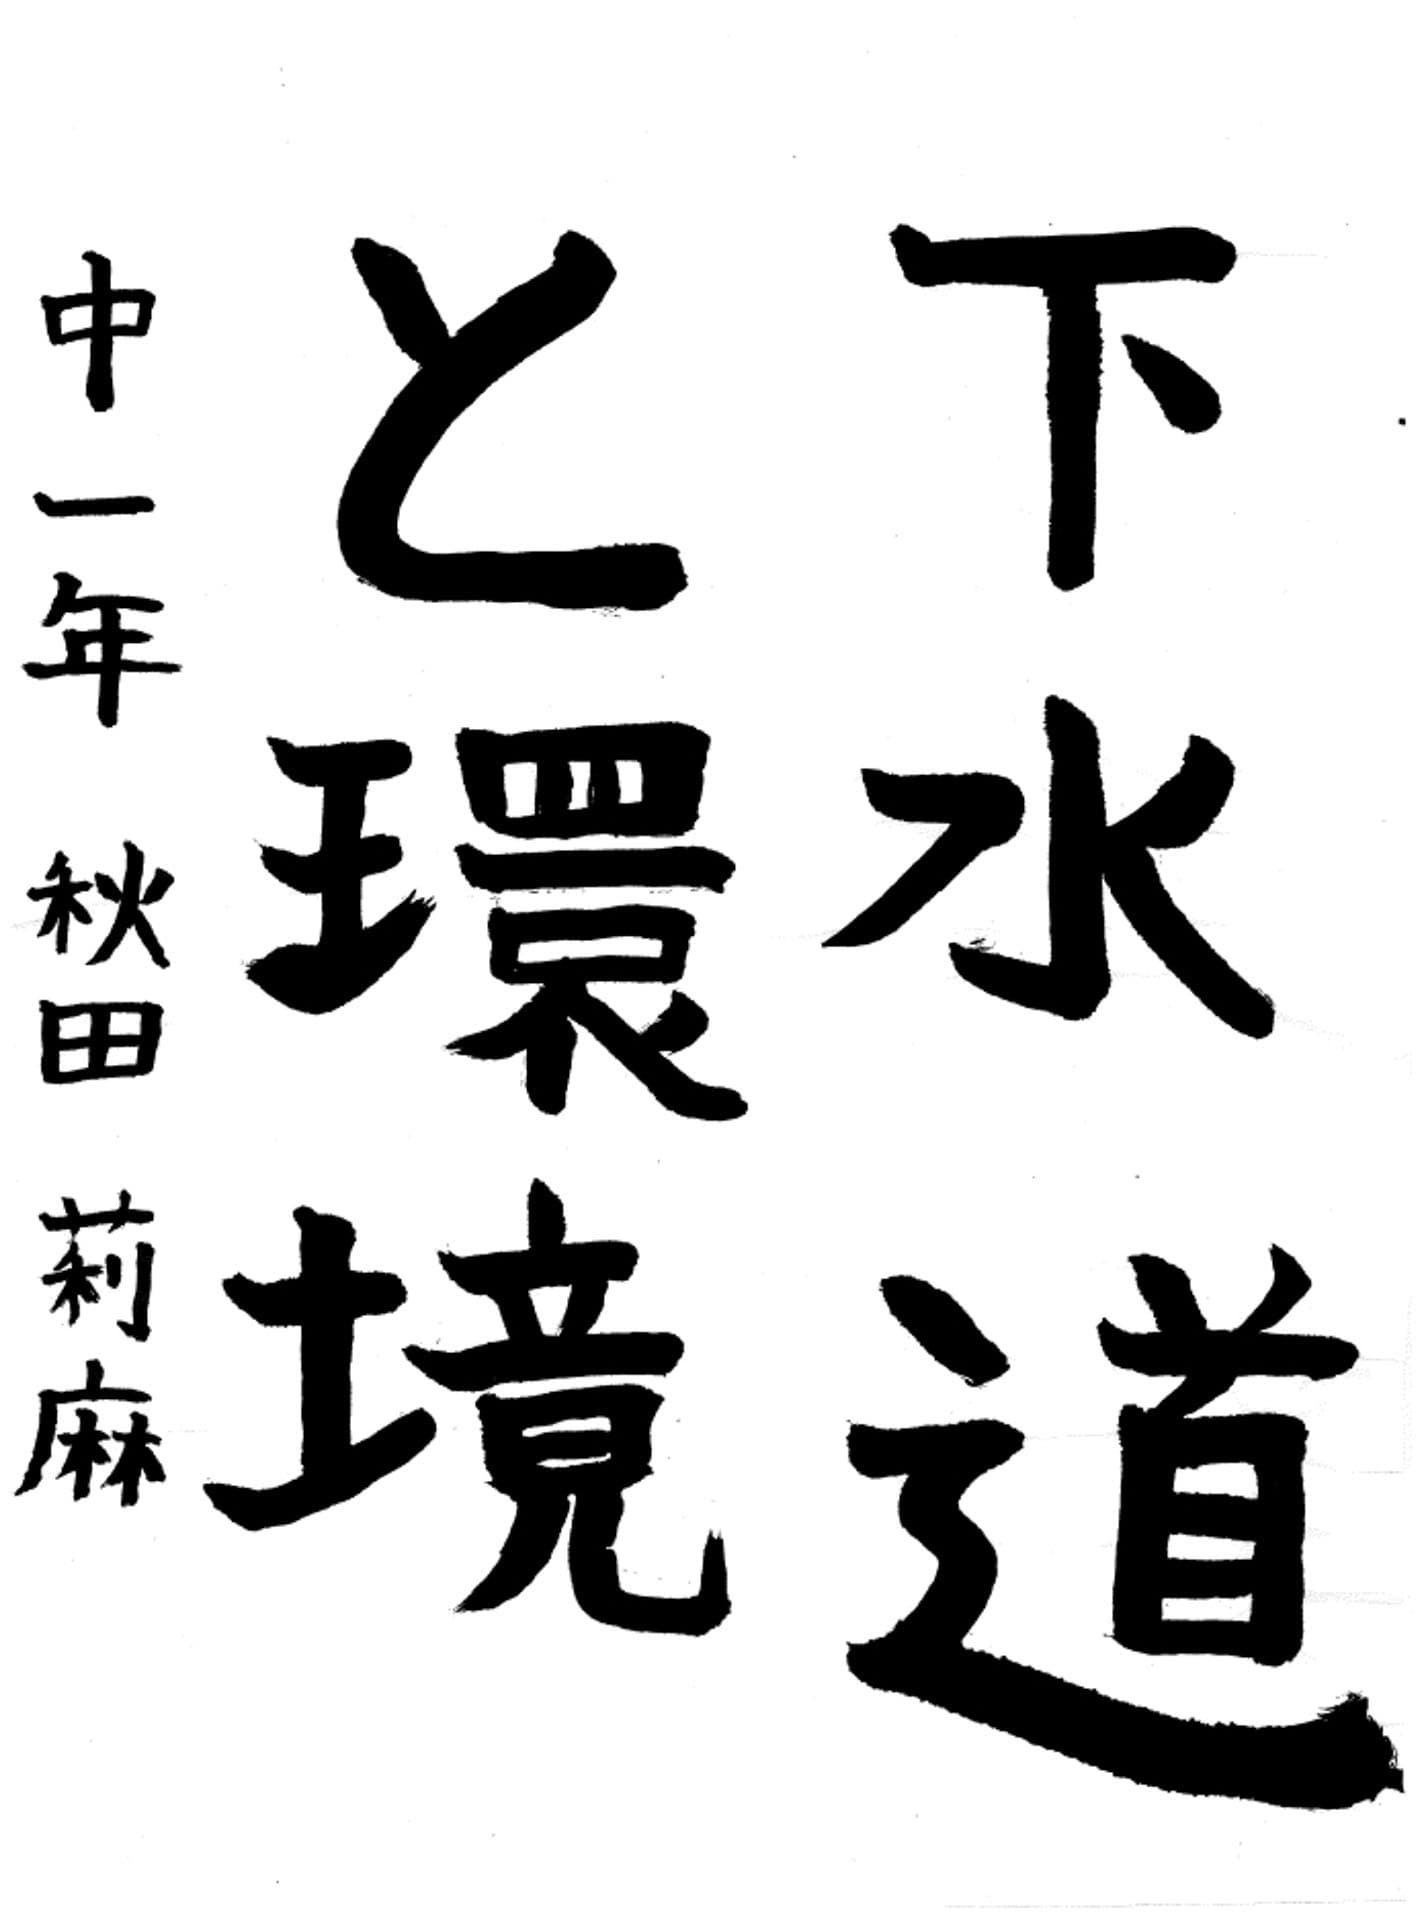 下水道
と環境
中一年 秋田 莉麻